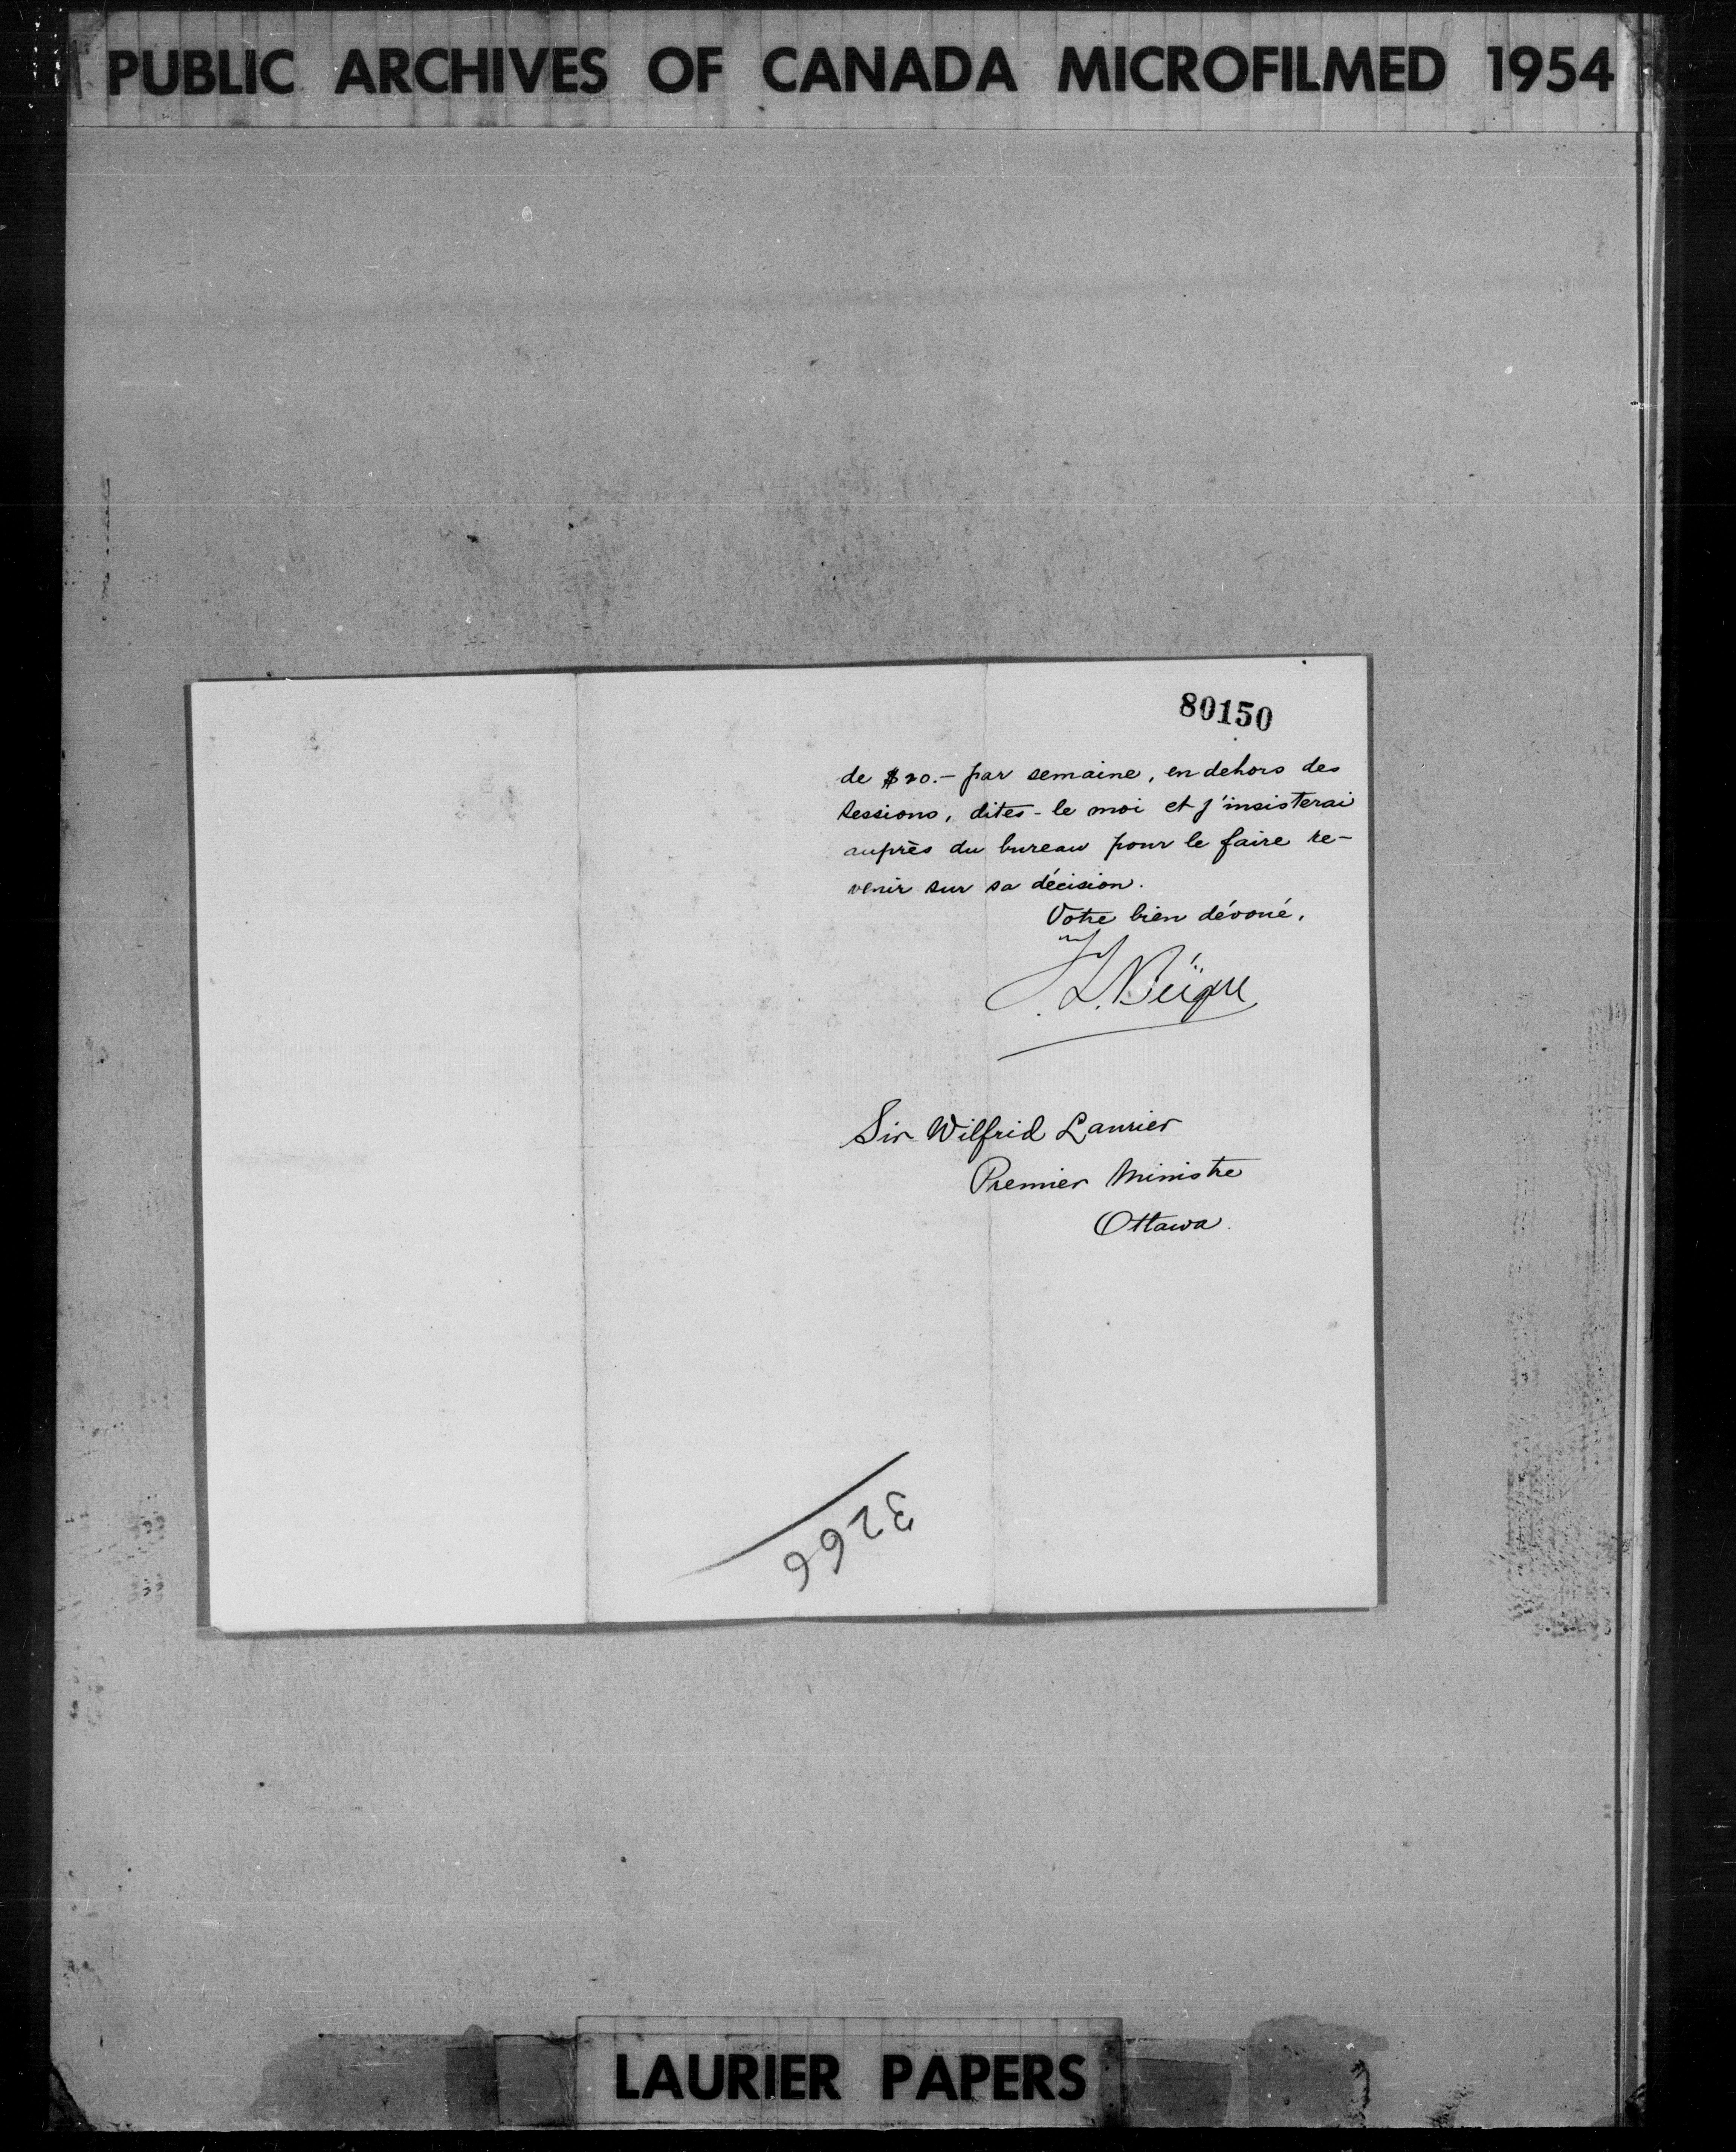 PUBLIC ARCHIVES OF CANADA MICROFILMED 1954
80150
de $20.- par semaine, en dehors des
sessions, dites-le moi et j'insisterai
auprès du bureau pour le faire re-
venir sur sa décision.
Votre bien dévoué,
F. L. Béïque
Sir Wilfrid Laurier
Premier Ministre
Ottawa.
3266
LAURIER PAPERS